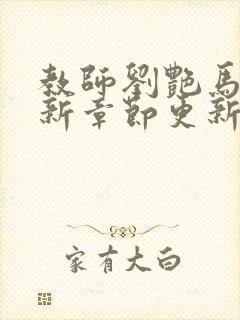 教師劉艷馬
新章節更新
家有大白